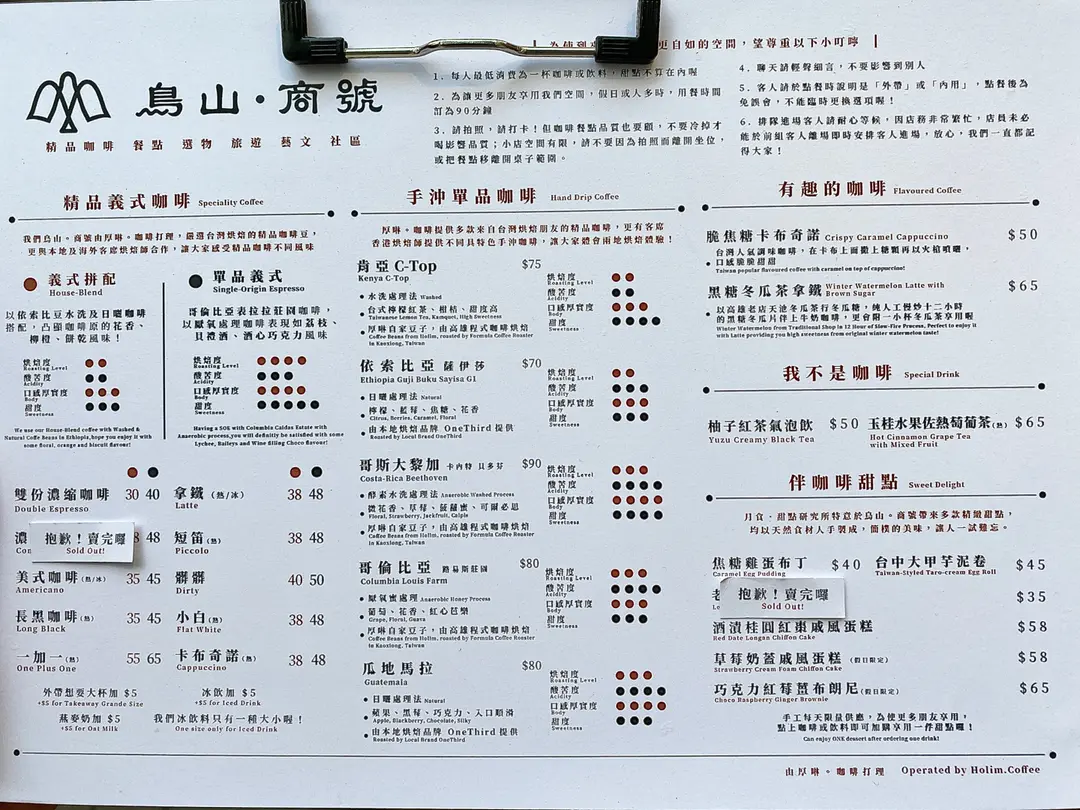 鳥山·商號
精品咖啡 餐點 選物 旅遊 藝文 社區
更自如的空間，望尊重以下小叮嚀
1. 每人最低消費為一杯咖啡或飲料，甜點不算在內喔
2. 為讓更多朋友享用我們空間，假日或人多時，用餐時間
訂為90分鐘
3. 請拍照，請打卡！但咖啡餐點品質也要顧，不要冷掉才
喝影響品質；小店空間有限，請不要因為拍照而離開坐位，
或把餐點移離開桌子範圍。
4. 聊天請輕聲細言，不要影響到別人
5. 客人請於點餐時說明是「外帶」或「內用」，點餐後為
免誤會，不能臨時更換選項喔！
6. 排隊進場客人請耐心等候，因店務非常繁忙，店員未必
能於前組客人離場即時安排客人進場，放心，我們一直都記
得大家！
精品義式咖啡 Speciality Coffee
我們鳥山。商號由厚啉。咖啡打理，嚴選台灣烘焙的精品咖啡豆，
更與本地及海外客席烘焙師合作，讓大家感受精品咖啡不同風味
義式拼配
House-Blend
以依索比亞水洗及日曬咖啡
搭配，凸顯咖啡原的花香、
柳橙、餅乾風味！
烘焙度
Roasting Level
酸苦度
Acidity
口感厚實度
Body
甜度
Sweetness
We use our House-Blend coffee with Washed &
Natural Coffe Beans in Ethiopia,hope you enjoy it with
some floral, orange and biscuit flavour!
單品義式
Single-Origin Espresso
哥倫比亞表拉拉莊園咖啡，
以厭氧處理咖啡表現如荔枝、
貝禮酒、酒心巧克力風味
烘焙度
Roasting Level
酸苦度
Acidity
口感厚實度
Body
甜度
Sweetness
Having a SOE with Columbia Caldas Estate with
Anaerobic process,you will definitly be satisfied with some
Lychee, Baileys and Wine filling Choco flavour!
雙份濃縮咖啡 30 40
Double Espresso
濃 抱歉！賣完囉 8 48
Con Sold Out!
美式咖啡(熱/冰) 35 45
Americano
長黑咖啡(熱) 35 45
Long Black
一加一(熱) 55 65
One Plus One
拿鐵 (熱/冰) 38 48
Latte
短笛(熱) 38 48
Piccolo
髒髒 40 50
Dirty
小白(熱) 38 48
Flat White
卡布奇諾(熱) 38 48
Cappuccino
外帶想要大杯加 $5
+$5 for Takeaway Grande Size
冰飲加 $5
+$5 for Iced Drink
燕麥奶加 $5
+$5 for Oat Milk
我們冰飲料只有一種大小喔！
One size only for Iced Drink
手沖單品咖啡 Hand Drip Coffee
厚啉。咖啡提供多款來自台灣烘焙朋友的精品咖啡，更有客席
香港烘焙師提供不同具特色手沖咖啡，讓大家體會兩地烘焙體驗！
肯亞 C-Top $75
Kenya C-Top
水洗處理法 Washed
台式檸檬紅茶、柑桔、甜度高
Taiwanese Lemon Tea, Kumquot, High Sweetness
厚啉自家豆子，由高雄程式咖啡烘焙
Coffee Beans from Holim, roasted by Formula Coffee Roaster
in Kaoxiong, Taiwan
烘焙度
Roasting Level
酸苦度
Acidity
口感厚實度
Body
甜度
Sweetness
依索比亞 薩伊莎 $70
Ethiopia Guji Buku Sayisa G1
日曬處理法 Natural
檸檬、藍莓、焦糖、花香
Citrus, Berries, Caramel, Floral
由本地烘焙品牌 OneThird 提供
Roasted by Local Brand OneThird
烘焙度
Roasting Level
酸苦度
Acidity
口感厚實度
Body
甜度
Sweetness
哥斯大黎加 卡內特 貝多芬 $90
Costa-Rica Beethoven
酵素水洗處理法 Anaerobic Washed Process
微花香、草莓、菠蘿蜜、可爾必思
Floral, Strawberry, Jackfruit, Calpis
厚啉自家豆子，由高雄程式咖啡烘焙
Coffee Beans from Holim, roasted by Formula Coffee Roaster
in Kaoxiong, Taiwan
烘焙度
Roasting Level
酸苦度
Acidity
口感厚實度
Body
甜度
Sweetness
哥倫比亞 路易斯莊園 $80
Columbia Louis Farm
厭氧蜜處理 Anaerobic Honey Process
葡萄、花香、紅心芭樂
Grape, Floral, Guava
厚啉自家豆子，由高雄程式咖啡烘焙
Coffee Beans from Holim, roasted by Formula Coffee Roaster
in Kaoxiong, Taiwan
烘焙度
Roasting Level
酸苦度
Acidity
口感厚實度
Body
甜度
Sweetness
瓜地馬拉 $80
Guatemala
日曬處理法 Natural
蘋果、黑莓、巧克力、入口順滑
Apple, Blackberry, Chocolate, Silky
由本地烘焙品牌 OneThird 提供
Roasted by Local Brand OneThird
烘焙度
Roasting Level
酸苦度
Acidity
口感厚實度
Body
甜度
Sweetness
有趣的咖啡 Flavoured Coffee
脆焦糖卡布奇諾 Crispy Caramel Cappuccino $50
台灣人氣調味咖啡，在卡布上面撒上糖顆再以火槍噴曬，
口感脆脆甜甜
Taiwan popular flavoured coffee with caramel on top of cappuccino!
黑糖冬瓜茶拿鐵 Winter Watermelon Latte with $65
Brown Sugar
以高雄老店天池冬瓜茶行冬瓜糖，純人工慢炒十二小時
的黑糖冬瓜片伴上牛奶咖啡，更會附一小杯冬瓜茶享用喔
Winter Watermelon from Traditional Shop in 12 Hour of Slow-Fire Process, Perfect to enjoy it
with Latte providing you high sweetness from original winter watermelon taste!
我不是咖啡 Special Drink
柚子紅茶氣泡飲 $50
Yuzu Creamy Black Tea
玉桂水果佐熱萄萄茶(熱) $65
Hot Cinnamon Grape Tea
with Mixed Fruit
伴咖啡甜點 Sweet Delight
月食．甜點研究所特意於鳥山。商號帶來多款精緻甜點，
均以天然食材人手製成，簡樸的美味，讓人一試難忘。
焦糖雞蛋布丁 $40
Caramel Egg Pudding
台中大甲芋泥卷 $45
Taiwan-Styled Taro-cream Egg Roll
老 抱歉！賣完囉 $35
Le Sold Out!
酒漬桂圓紅棗戚風蛋糕 $58
Red Date Longan Chiffon Cake
草莓奶蓋戚風蛋糕 (假日限定) $58
Strawberry Cream Foam Chiffon Cake
巧克力紅莓薑布朗尼(假日限定) $65
Choco Raspberry Ginger Brownie
手工每天限量供應，為使更多朋友享用，
點上咖啡或飲料即可加購享用一件甜點囉！
Can enjoy ONE dessert after ordering one drink!
由厚啉。咖啡打理 Operated by Holim.Coffee